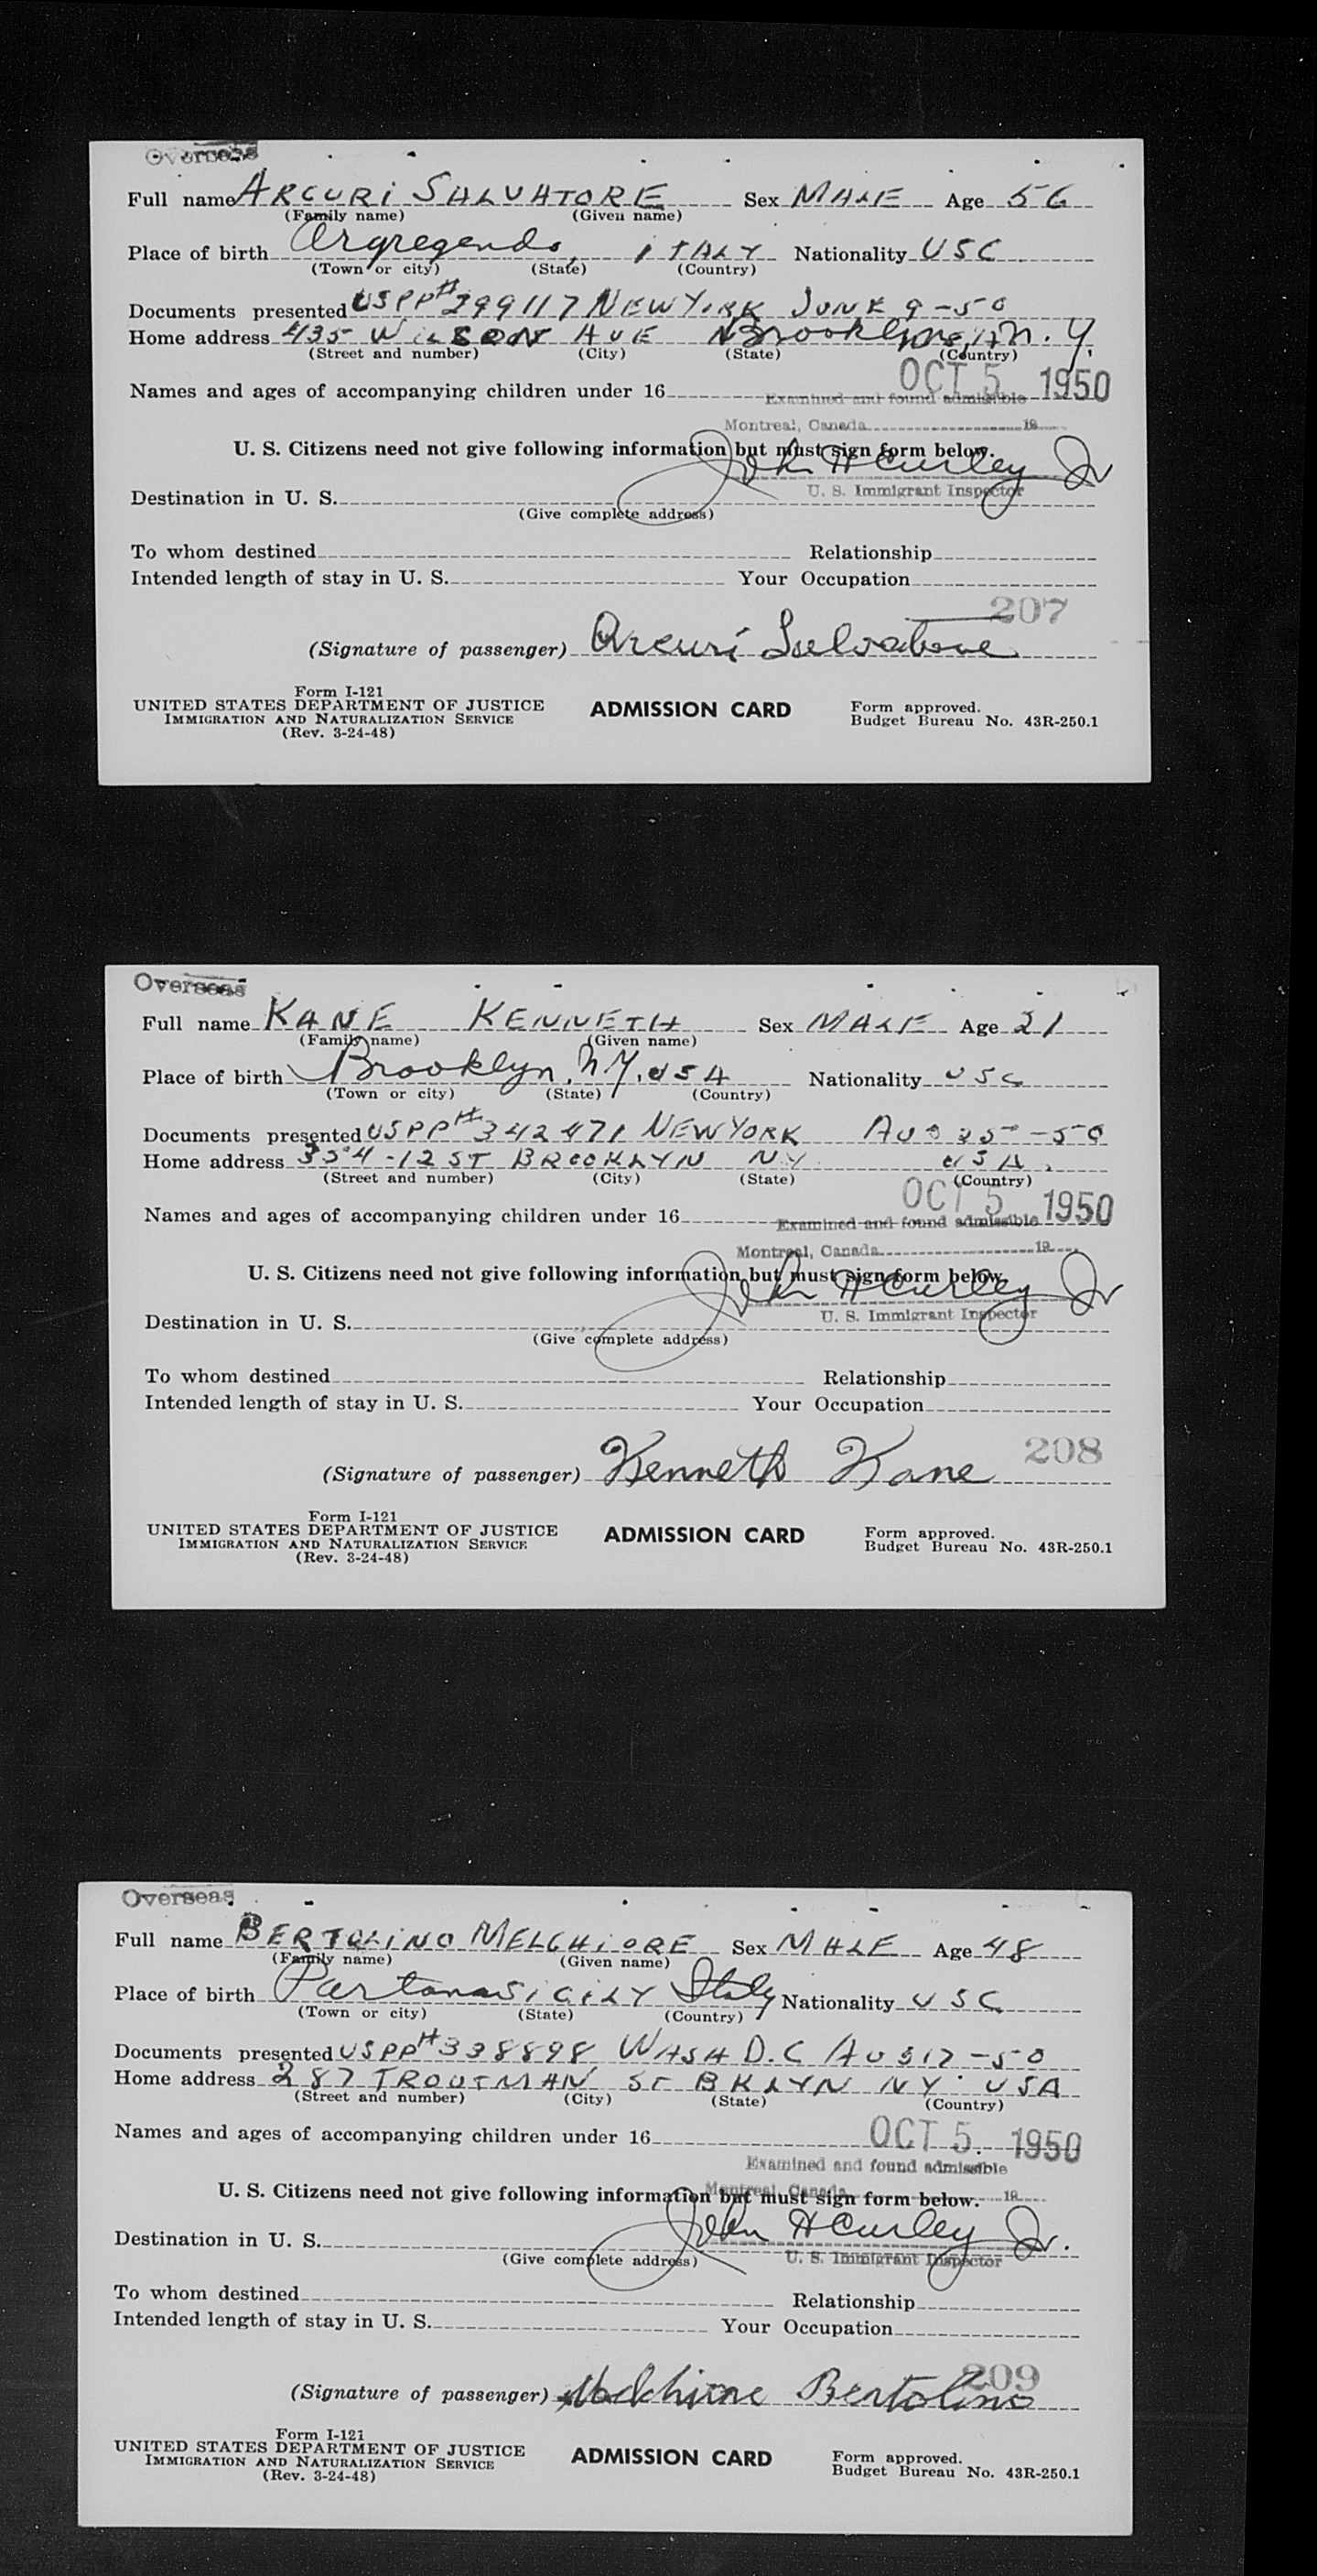 Overseas
Full name ARCURI SALVATORE Sex MALE Age 56
(Family name) (Given name)
Place of birth Argregendo, ITALY Nationality USC
(Town or city) (State) (Country)
Documents presented USPP# 299117 NEW YORK JUNE 9-50
Home address 435 WILSON AVE Brooklyn, N.Y.
(Street and number) (City) (State) (Country)
OCT 5 1950
Names and ages of accompanying children under 16
Examined and found admissible
Montreal, Canada 19
U. S. Citizens need not give following information but must sign form below.
John H Curley Jr
U. S. Immigrant Inspector
Destination in U. S.
(Give complete address)
To whom destined Relationship
Intended length of stay in U. S. Your Occupation
207
(Signature of passenger) Arcuri Salvatore
Form I-121
UNITED STATES DEPARTMENT OF JUSTICE ADMISSION CARD Form approved.
IMMIGRATION AND NATURALIZATION SERVICE Budget Bureau No. 43R-250.1
(Rev. 3-24-48)
Overseas
Full name KANE KENNETH Sex MALE Age 21
(Family name) (Given name)
Place of birth Brooklyn, N.Y. USA Nationality USC
(Town or city) (State) (Country)
Documents presented USPP# 342471 NEW YORK AUG 25-50
Home address 354-12 ST BROOKLYN NY USA.
(Street and number) (City) (State) (Country)
OCT 5 1950
Names and ages of accompanying children under 16
Examined and found admissible
Montreal, Canada 19
U. S. Citizens need not give following information but must sign form below.
John H Curley Jr
U. S. Immigrant Inspector
Destination in U. S.
(Give complete address)
To whom destined Relationship
Intended length of stay in U. S. Your Occupation
208
(Signature of passenger) Kenneth Kane
Form I-121
UNITED STATES DEPARTMENT OF JUSTICE ADMISSION CARD Form approved.
IMMIGRATION AND NATURALIZATION SERVICE Budget Bureau No. 43R-250.1
(Rev. 3-24-48)
Overseas
Full name BERTOLINO MELCHIORE Sex MALE Age 48
(Family name) (Given name)
Place of birth Partana SICILY Italy Nationality USC
(Town or city) (State) (Country)
Documents presented USPP# 338898 WASH D.C AUG 17-50
Home address 287 TROUTMAN ST BKLYN NY USA
(Street and number) (City) (State) (Country)
OCT 5. 1950
Names and ages of accompanying children under 16
Examined and found admissible
Montreal, Canada 19
U. S. Citizens need not give following information but must sign form below.
John H Curley Jr.
U. S. Immigrant Inspector
Destination in U. S.
(Give complete address)
To whom destined Relationship
Intended length of stay in U. S. Your Occupation
209
(Signature of passenger) Melchiore Bertolino
Form I-121
UNITED STATES DEPARTMENT OF JUSTICE ADMISSION CARD Form approved.
IMMIGRATION AND NATURALIZATION SERVICE Budget Bureau No. 43R-250.1
(Rev. 3-24-48)